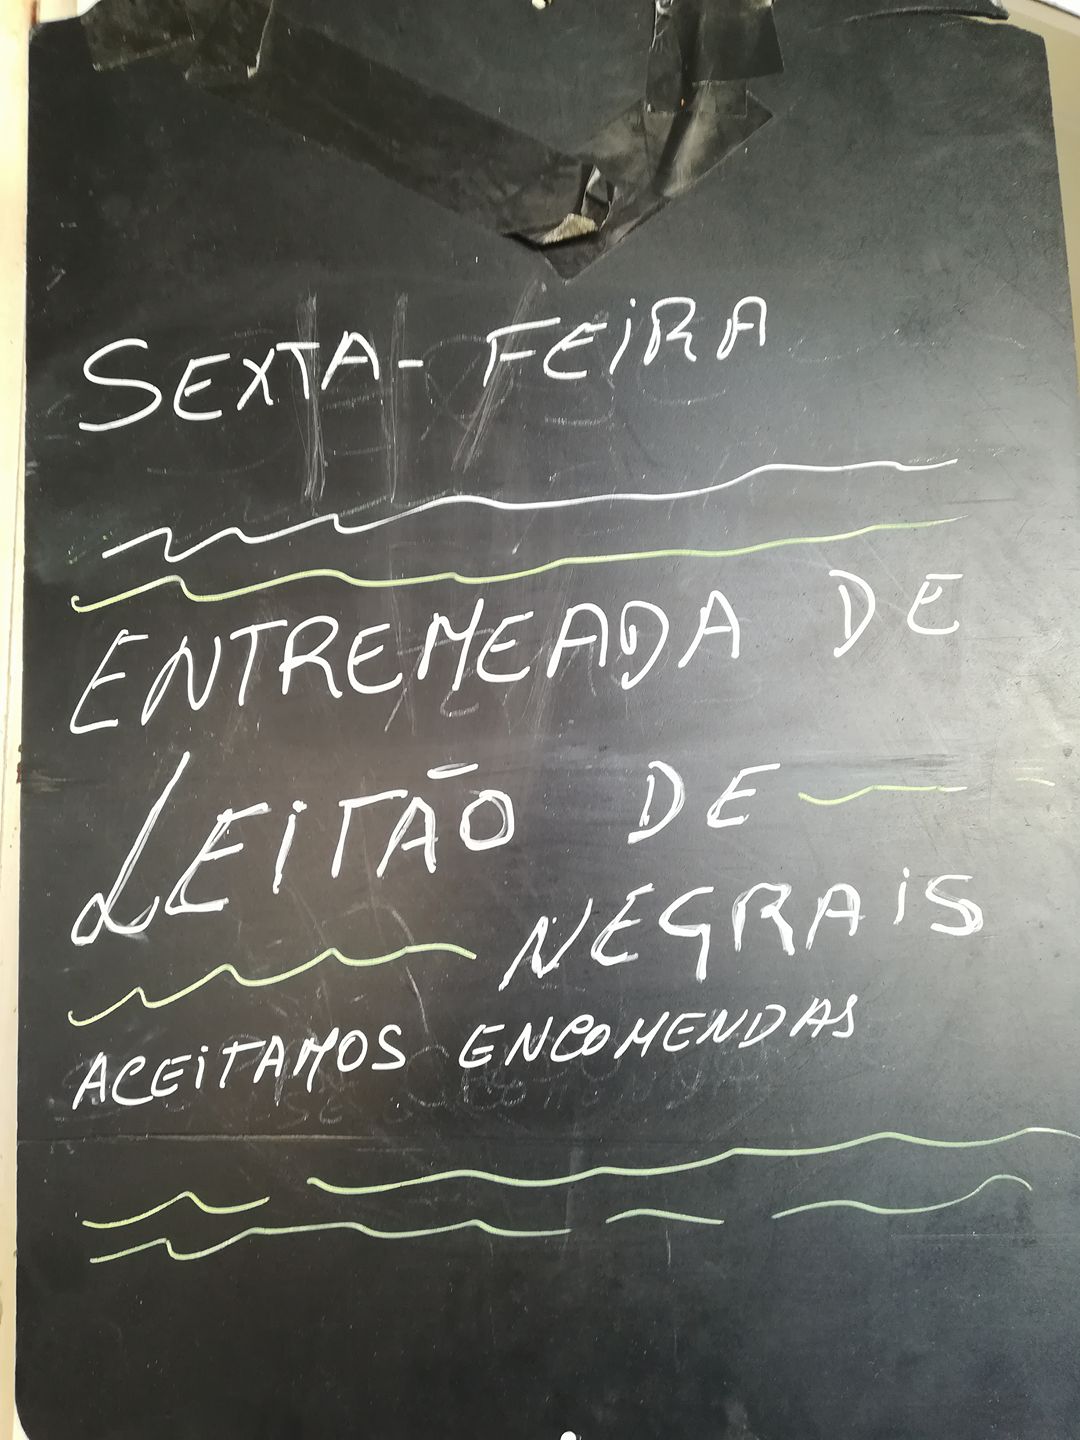 SEXTA-FEIRA
ENTREMEADA DE
LEITÃO DE
NEGRAIS
ACEITAMOS ENCOMENDAS